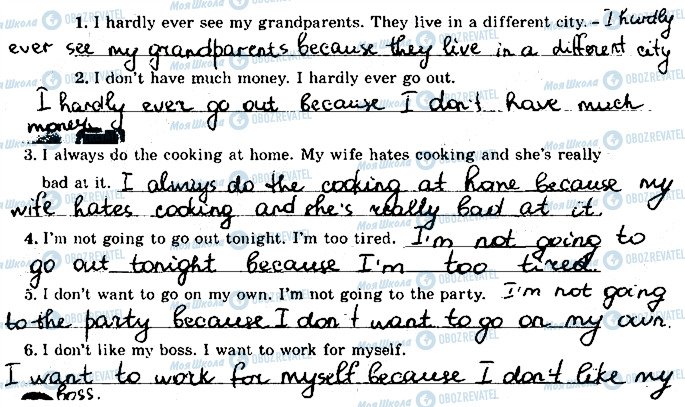 1. I hardly ever see my grandparents. They live in a different city. – I hardly
ever see my grandparents because they live in a different city
2. I don't have much money. I hardly ever go out.
I hardly ever go out because I don't have much
money
3. I always do the cooking at home. My wife hates cooking and she's really
bad at it. I always do the cooking at home because my
wife hates cooking and she's really bad at it.
4. I'm not going to go out tonight. I'm too tired. I'm not going to
go out tonight because I'm too tired.
5. I don't want to go on my own. I'm not going to the party. I'm not going
to the party because I don't want to go on my own.
6. I don't like my boss. I want to work for myself.
I want to work for myself because I don't like my
boss.